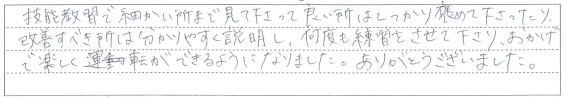 技能教習で細かい所まで見て下さって良い所はしっかり褒めて下さったり
改善すべき所は分かりやすく説明し、何度も練習をさせて下さり、おかげ
で楽しく運転ができるようになりました。ありがとうございました。